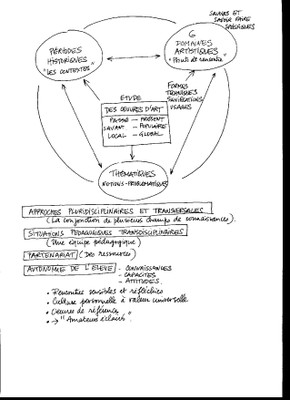 SAVOIRS ET
SAVOIR FAIRE
SPÉCIFIQUES
PÉRIODES
HISTORIQUES
"LES CONTEXTES"
6
DOMAINES
ARTISTIQUES
"Points de rencontre"
FORMES
TECHNIQUES
SIGNIFICATIONS
USAGES
ETUDE
DES ŒUVRES D'ART
PASSÉ — PRÉSENT
SAVANT — POPULAIRE
LOCAL — GLOBAL
THÉMATIQUES
NOTIONS-PROBLÉMATIQUES
APPROCHES PLURIDISCIPLINAIRES ET TRANSVERSALES
(La conjonction de plusieurs champs de connaissances).
SITUATIONS PÉDAGOGIQUES TRANSDISCIPLINAIRES
(Une équipe pédagogique)
PARTENARIAT (Des ressources)
AUTONOMIE DE L'ÉLÈVE - CONNAISSANCES
- CAPACITÉS
- ATTITUDES.
• Rencontres sensibles et réfléchies
• Culture personnelle à valeur universelle
• Oeuvres de référence
• → "Amateurs éclairés"